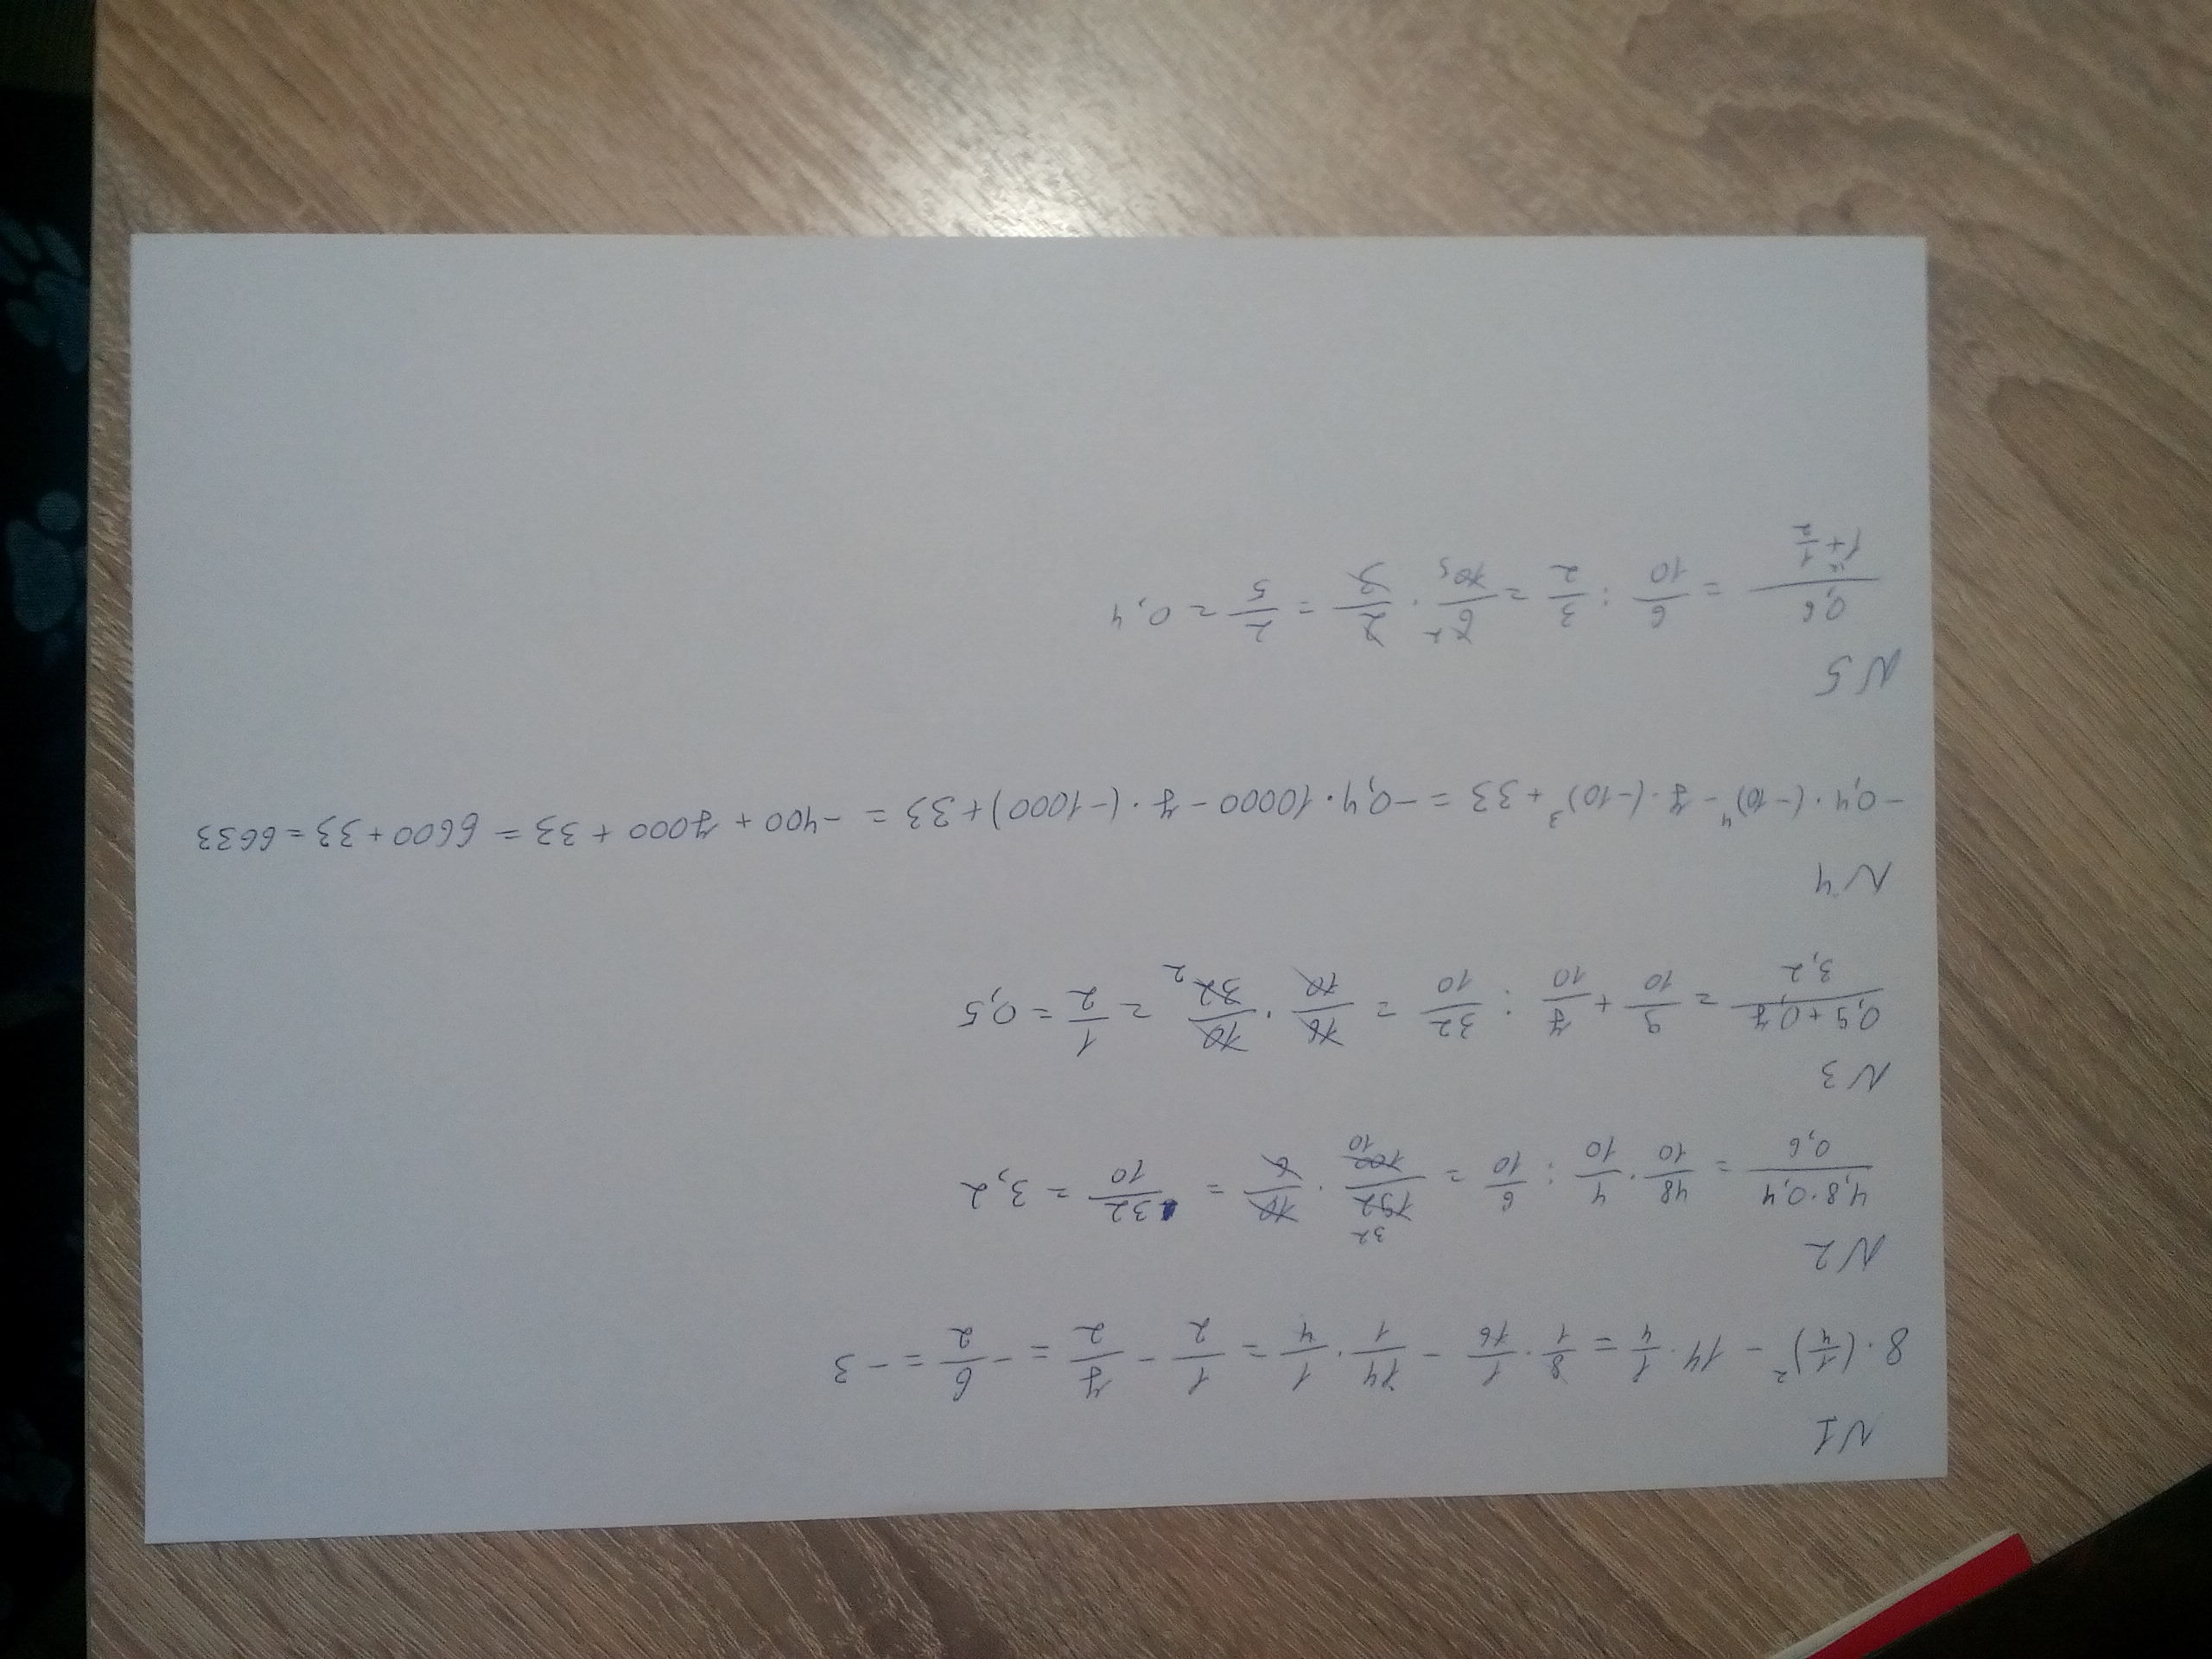 N1
8·(1/4)² - 14·1/4 = 8/1·1/16 - 14/1·1/4 = 1/2 - 7/2 = -6/2 = -3
N2
4,8·0,4/0,6 = 48/10·4/10 : 6/10 = 192 32/100 10·10/6 = 32/10 = 3,2
N3
0,9+0,7/3,2 = 9/10 + 7/10 : 32/10 = 16/10·10/32 2 = 1/2 = 0,5
N4
-0,4·(-10)⁴ - 7·(-10)³ + 33 = -0,4·10000 - 7·(-1000) + 33 = -400 + 7000 + 33 = 6600 + 33 = 6633
N5
0,6/1+1/2 = 6/10 : 3/2 = 6 2/10 5·2/3 = 2/5 = 0,4